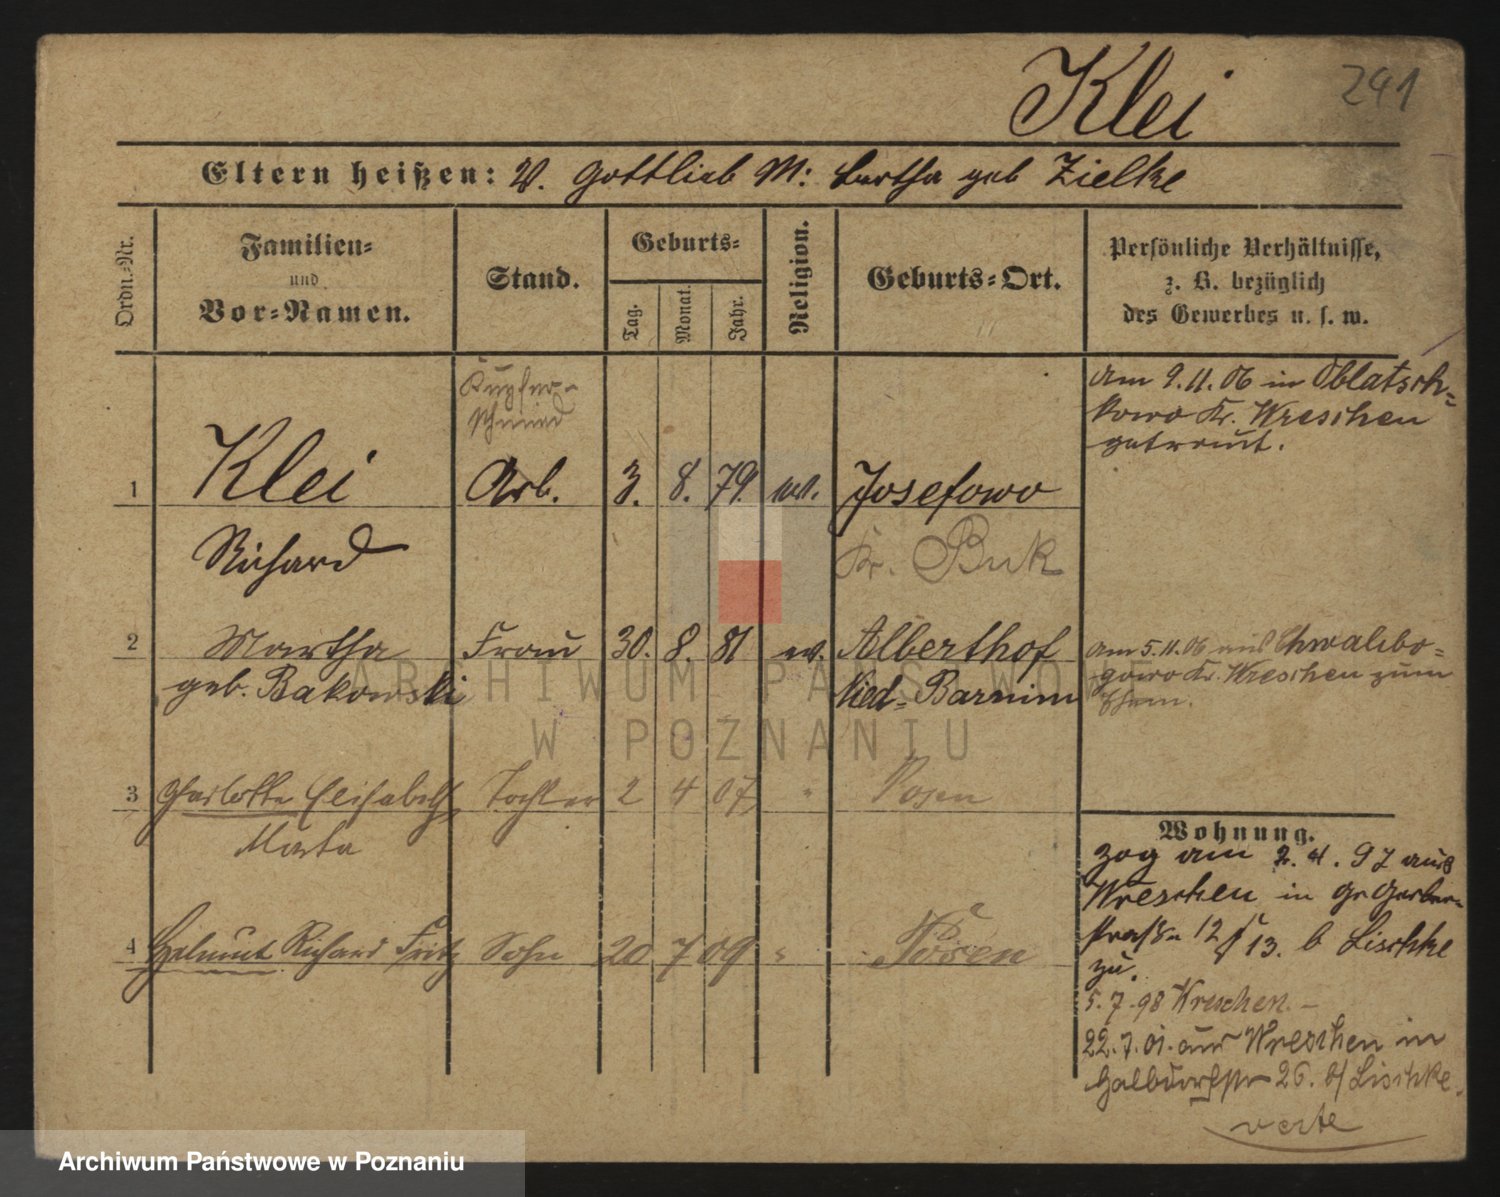 Klei
241
Eltern heißen: V. Gottlieb M: Bertha geb Zielke
Ordn.-Nr.
Familien-
und
Vor-Namen.
Stand.
Geburts-
Tag.
Monat.
Jahr.
Religion.
Geburts-Ort.
Persönliche Verhältnisse,
z. B. bezüglich
des Gewerbes u. s. w.
Kupfer-
schmied
am 9.11.06 in Oblatsch-
kowo Kr. Wreschen
getraut.
1 Klei Arb. 3. 8. 79. ev. Josefowo
Richard Kr. Buk
2 Martha Frau 30. 8. 81 ev. Alberthof
geb. Bakowski Nied-Barnim
am 5.11.06 aus Chwalibo-
gowo Kr. Wreschen zum
Ehem.
3 Charlotte Elisabeth Tochter 2 4 07 " Posen
Marta
4 Helmut Richard Fritz Sohn 20 7 09 " Posen
Wohnung.
zog am 2. 4. 97 aus
Wreschen in Gr Gerber-
straße 12/13. b Lischke
zu.
5.7.98 Wreschen. –
22.7.01. aus Wreschen in
Halbdorfstr 26. b/ Lischke.
verte
ARCHIWUM PAŃSTWOWE
W POZNANIU
Archiwum Państwowe w Poznaniu